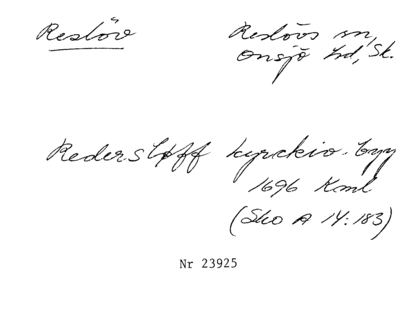 Reslöv Reslövs sn,
Onsjö hd, Sk.
Rederslöff kyrckio-byy
1696 Kml
(Sko A 14:183)
Nr 23925